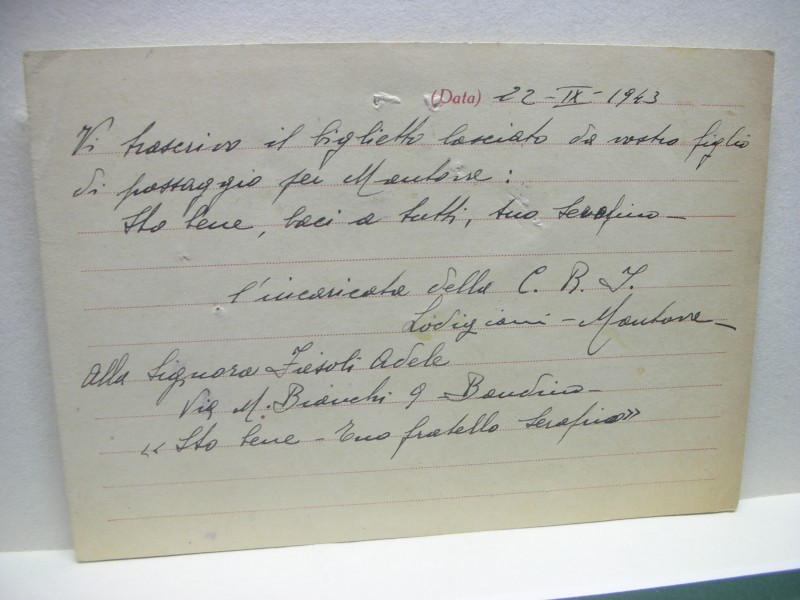 (Data) 22-IX-1943
Vi trascrivo il biglietto lasciato da vostro figlio
di passaggio per Mantova:
Sto bene, baci a tutti, tuo Serafino-
l'incaricata della C. R. I.
Lodigiani - Mantova-
alla Signora Fiesoli Adele
Via M. Bianchi 9 Bandino-
«Sto bene - Tuo fratello Serafino»